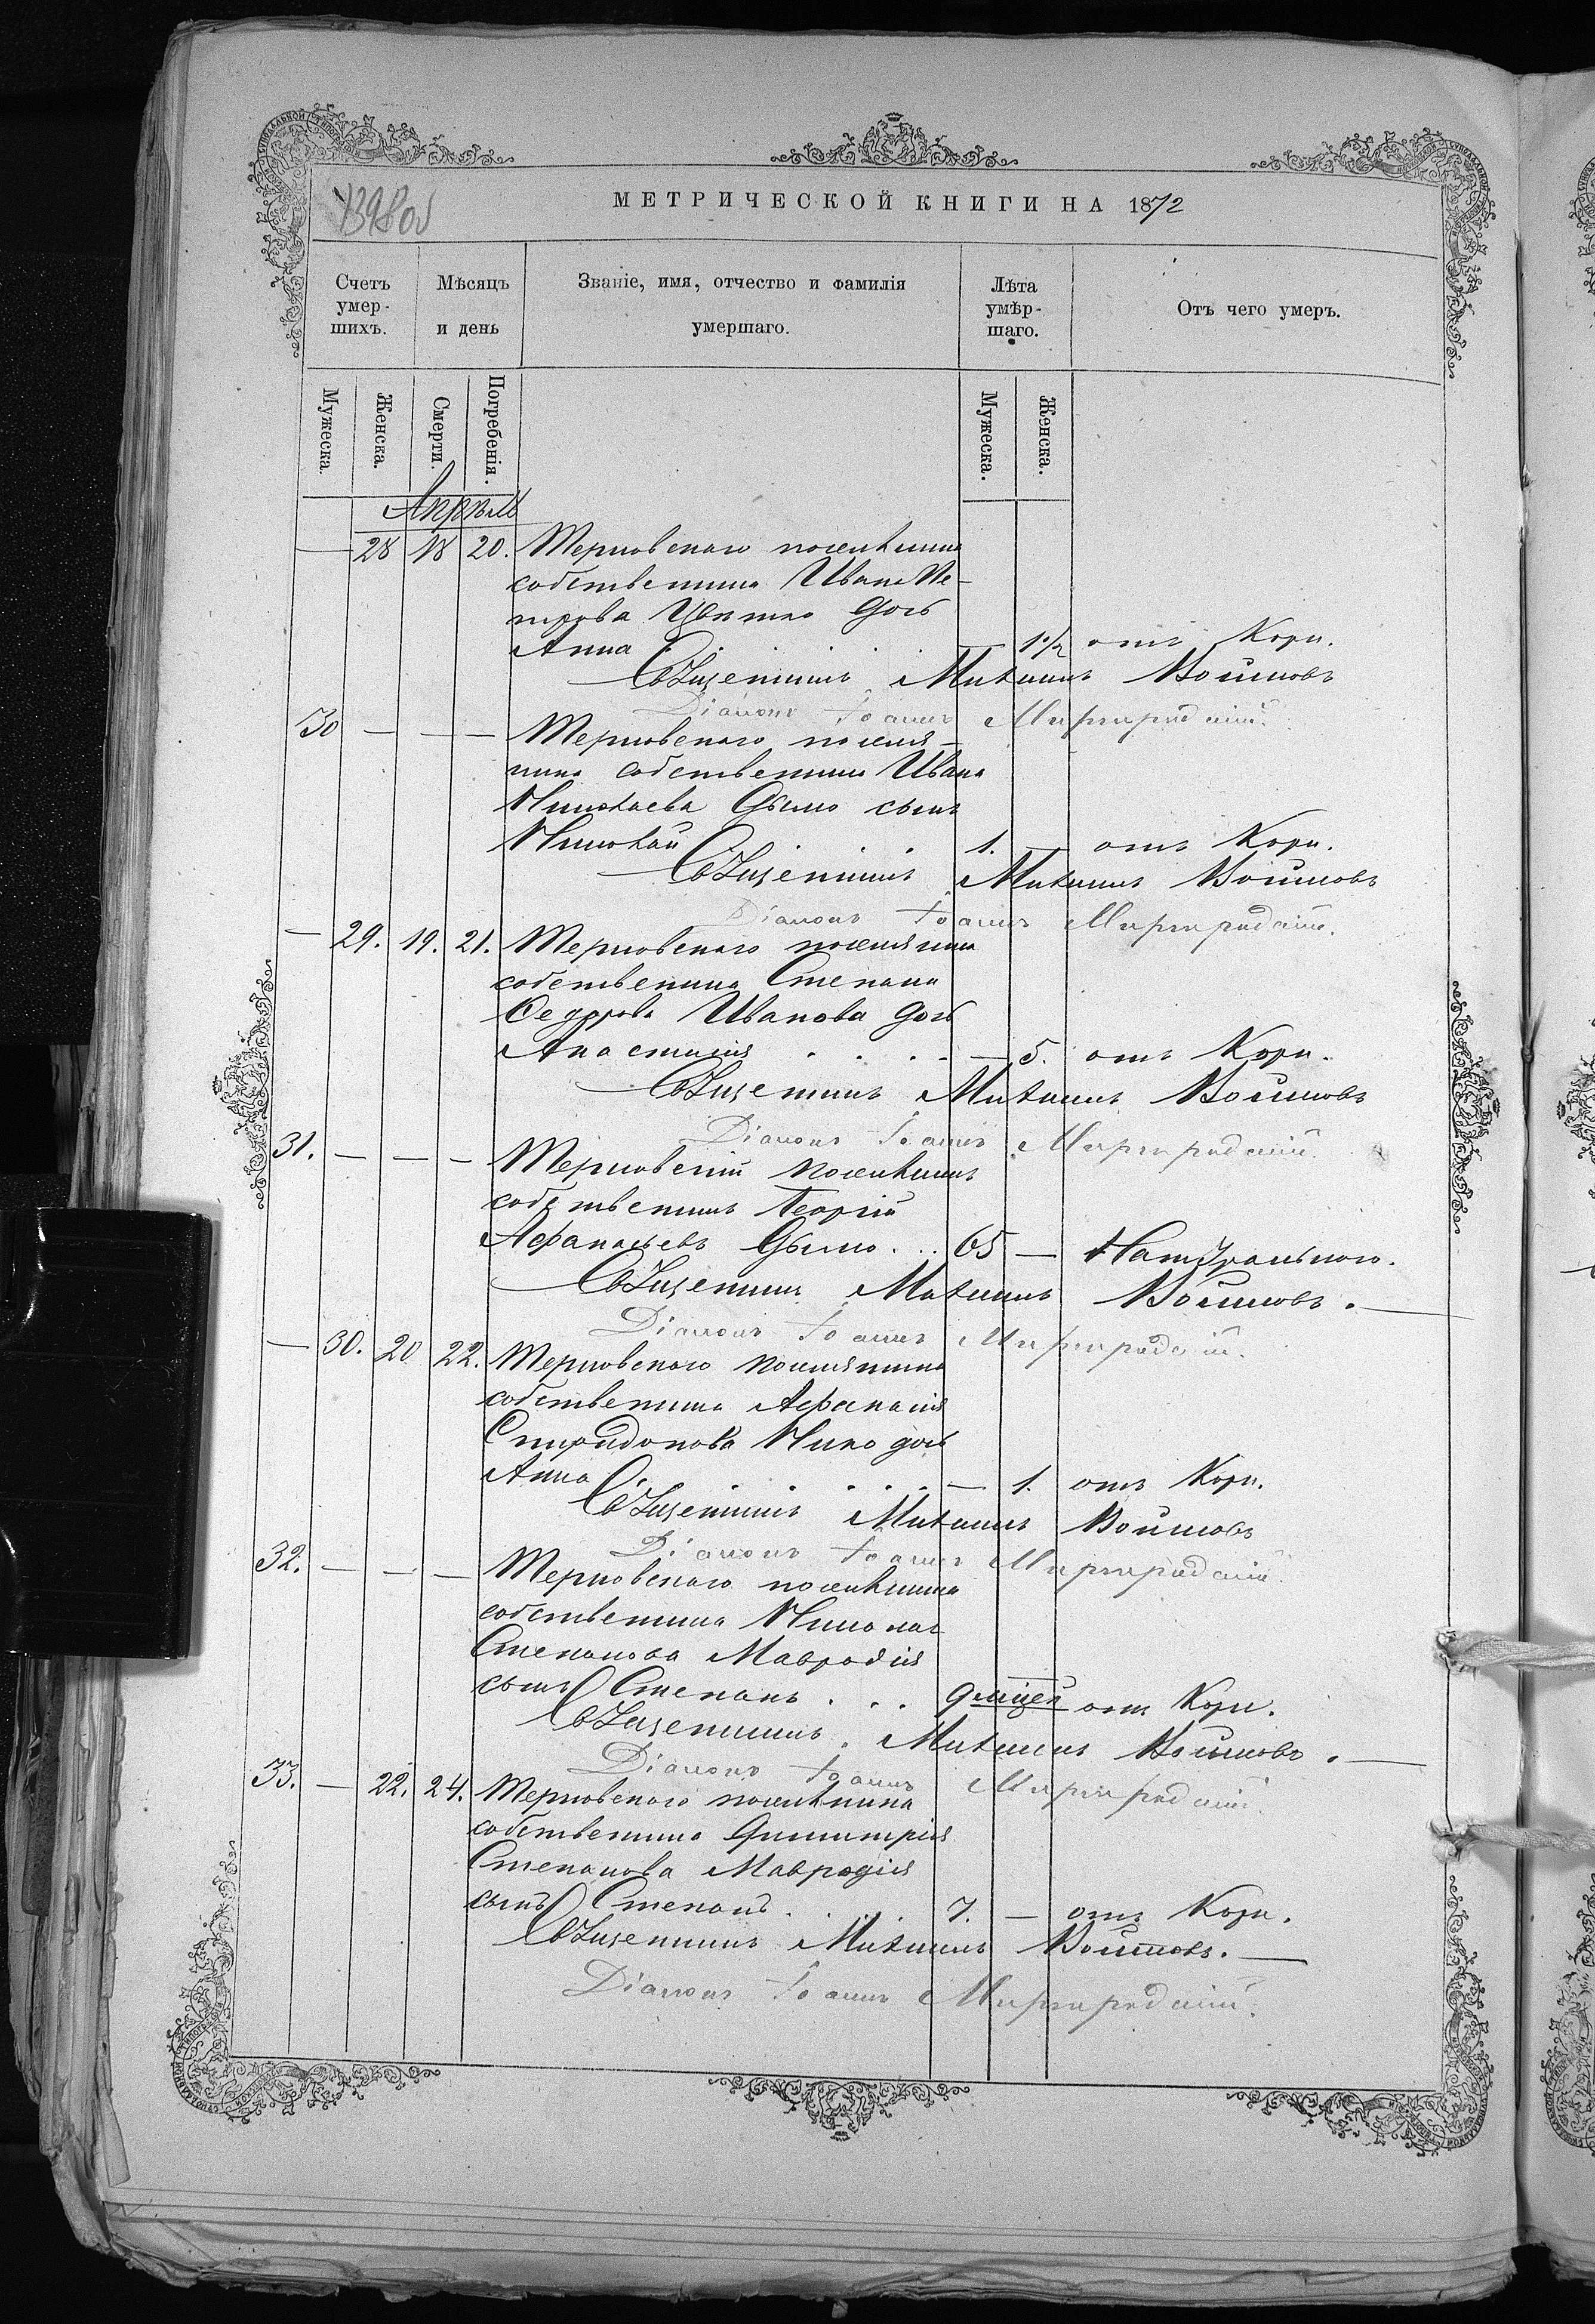 МЕТРИЧЕСКОЙ КНИГИ НА 1872
Счетъ умер- шихъ.
Мѣсяцъ и день
Званіе, имя, отчество и фамилія умершаго.
Лѣта умѣр- шаго.
Отъ чего умеръ.
Мужеска.
Женска.
Смерти.
Погребенія.
Мужеска.
Женска.
Апрѣль
— 28 18 20. Терновскаго поселянина
собственника Ивана Пе-
трова Цвѣтко дочь
Анна — 1½ отъ Кори.
Священникъ Михаилъ Войновъ
Діаконъ Іоаннъ
30 — — — Терновскаго поселя-
нина собственника Ивана
Николаева Дымо сынъ
Николай 1. — отъ Кори.
Священникъ Михаилъ Войновъ
Діаконъ Іоаннъ
— 29. 19. 21. Терновскаго поселянина
собственника Степана
Ѳедорова Иванова дочь
Анастасія — 5. отъ Кори.
Священникъ Михаилъ Войновъ
Діаконъ Іоаннъ
31. — — — Терновскій поселянинъ
собственникъ Георгій
Афанасьевъ Дымо 65 — Натуральною.
Священникъ Михаилъ Войновъ.
Діаконъ Іоаннъ
— 30. 20 22. Терновскаго поселянина
собственника Афанасія
Спиридонова Нико дочь
Анна — 1. отъ Кори.
Священникъ Михаилъ Войновъ
Діаконъ Іоаннъ
32. — — — Терновскаго поселянина
собственника Николая
Степанова Мавродія
сынъ Степанъ 9 мѣсяц отъ Кори.
Священникъ Михаилъ Войновъ.
Діаконъ Іоаннъ
33. — 22. 24. Терновскаго поселянина
собственника Димитрія
Степанова Мавродія
сынъ Степанъ 7. — отъ Кори.
Священникъ Михаилъ Войновъ.
Діаконъ Іоаннъ